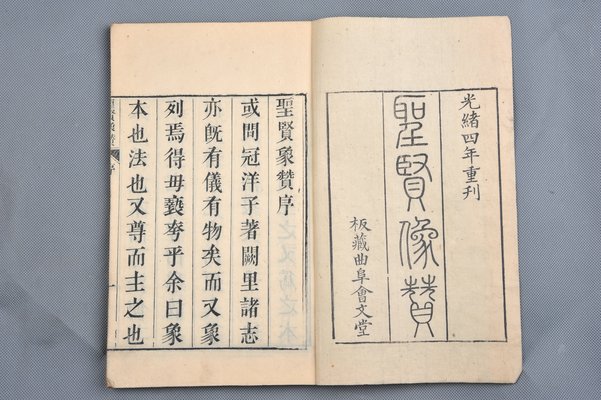 光緒四年重刊
聖賢像贊
板藏曲阜會文堂
聖賢象贊序
或問冠洋子著闕里諸志
亦旣有儀有物矣而又象
列焉得毋褻夸乎余曰象
本也法也又尊而主之也